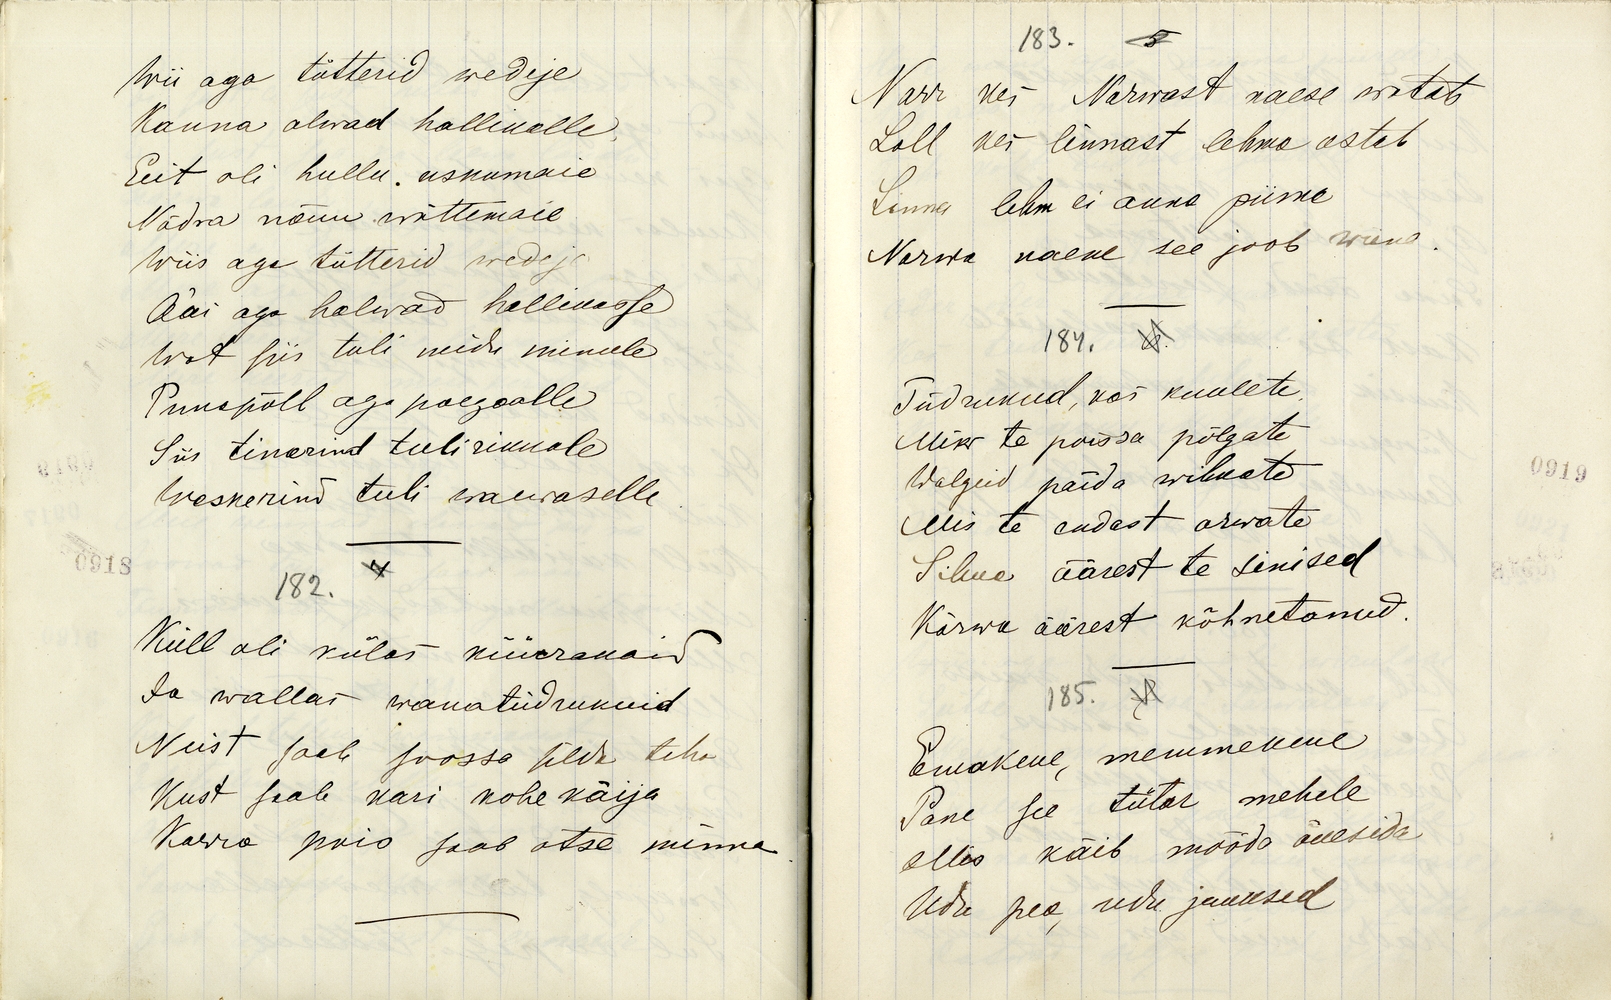 Wii aga tütterid wedeje
Kanna alwad hallikalle,
Eit oli hullu. uskumaie
Nõdra nõuu wõttemaie
Wiis aga tütterid wedeje
Äái aga halwad hallikasse
Wot siis tuli neidu minule
Punapõll aga poegoalle
Siis tinarind tuli rinnale
Waskerind tuli waewaselle
0918
182.
Küll oli külas küüerakaid
Ja wallas wanatüdrukuid
Neist saab soosse silda teha
Kust saab kari kohe käija
Karra pois saab otse minna
183. 5
Narr kes Narwast naese wõtab
Loll kes linnast lehma ostab
Linna lehm ei anna piima
Narwa naene see joob wiina.
184.
Tüdrukud, kas kuulete,
Miks te poissa põlgate
Walgeid päida wihkate
Mis te endast arwate
Silma äärest te sinised
Kõrwa äärest kõhnetanud.
0919
185.
Emakene, memmekene
Pane see tütar mehele
Mis käib mööda õuesida
Udu pea, udu juuksed